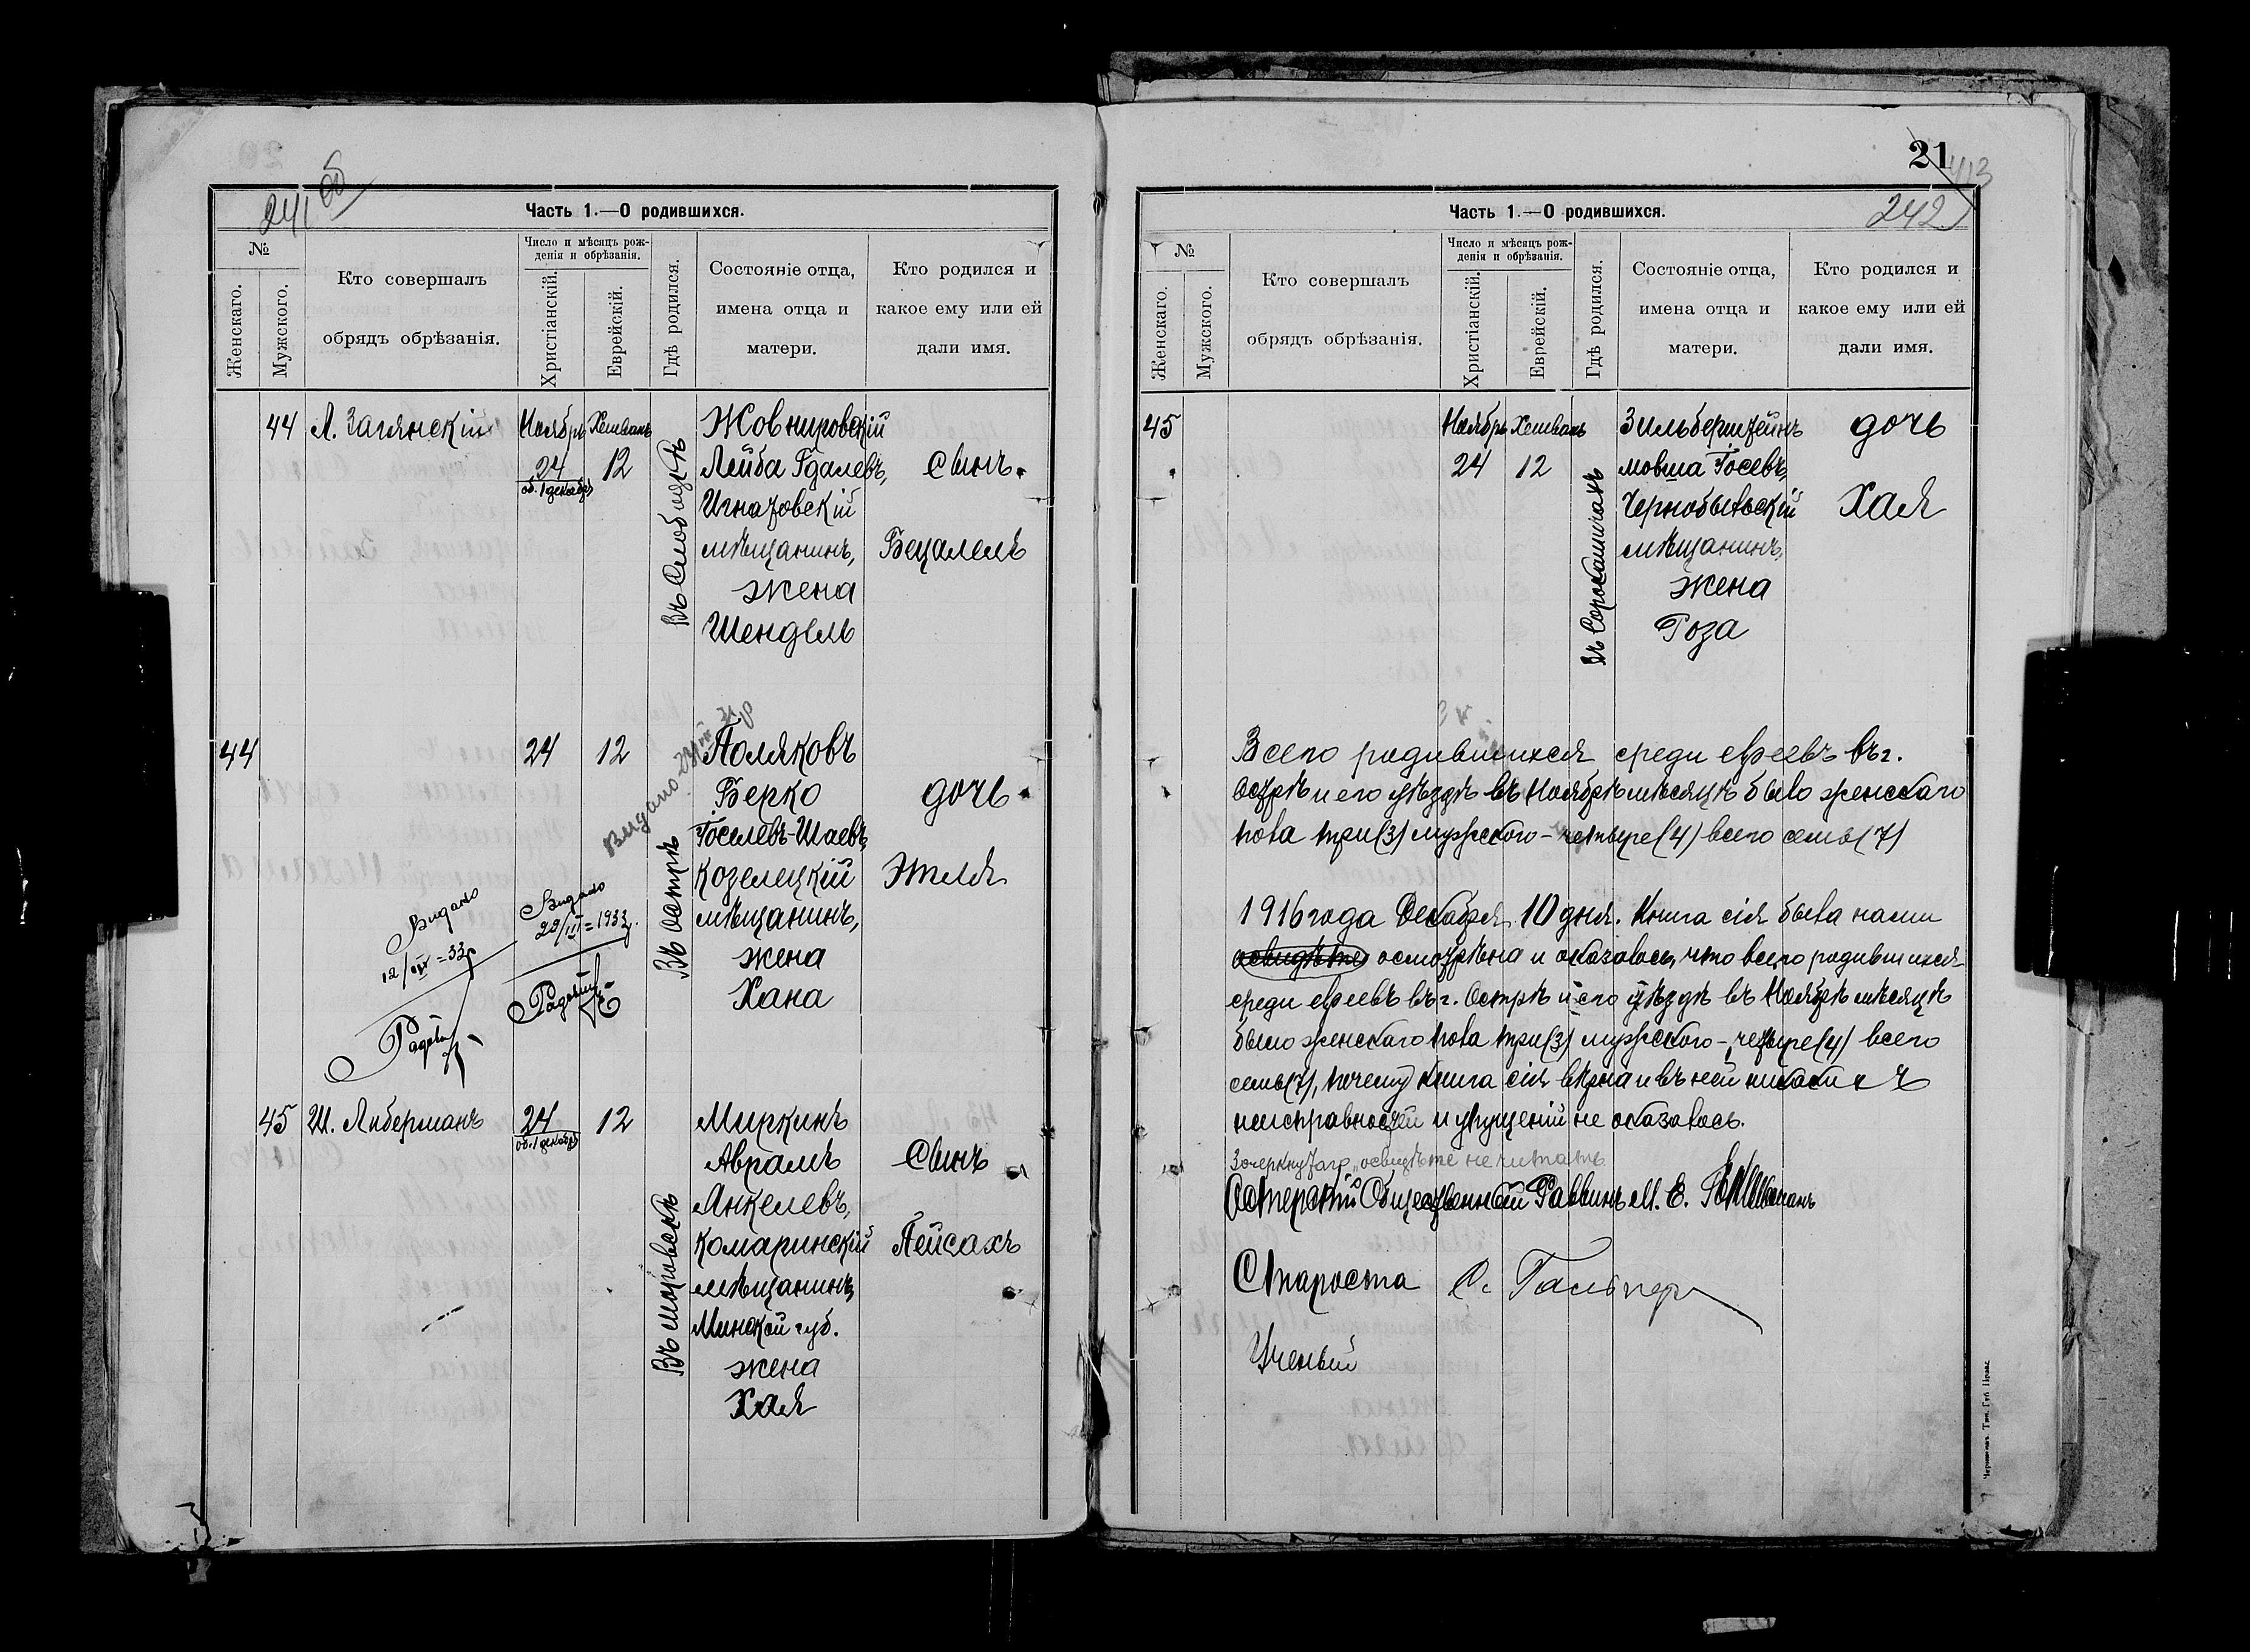 241 об
Часть 1.—О родившихся.
№
Женскаго.
Мужского.
Кто совершалъ
обрядъ обрѣзанія.
Число и мѣсяцъ рож-
денія и обрѣзанія.
Христіанскій.
Еврейскій.
Гдѣ родился.
Состояніе отца,
имена отца и
матери.
Кто родился и
какое ему или ей
дали имя.
44 Л. Заглянскій Ноябрь Хешванъ Жовнировскій
24 12 Лейба Гдалевъ, сынъ.
об. 1 декабря
Игнатовскій
мѣщанинъ, Бецалель
жена
Шендель
Въ Слободкѣ
44 24 12 Поляковъ
Берко дочь
Іоселевъ-Шаевъ,
Козелецкій Этля
мѣщанинъ,
жена
Хана
Въ Острѣ
Видано
Видано
12/IV=33р
Видано
29/III=1933р.
45 Ш. Либерманъ 24 12 Миркинъ
об. 1 декабря
Аврамъ Сынъ
Анкелевъ,
Комаринскій Пейсахъ
мѣщанинъ,
Минской губ.
жена
Хая
Въ Моровскѣ
21
242
Часть 1.—О родившихся.
№
Женскаго.
Мужского.
Кто совершалъ
обрядъ обрѣзанія.
Число и мѣсяцъ рож-
денія и обрѣзанія.
Христіанскій.
Еврейскій.
Гдѣ родился.
Состояніе отца,
имена отца и
матери.
Кто родился и
какое ему или ей
дали имя.
45 Ноябрь Хешванъ Зильберштейнъ дочь
24 12 Мовша Іосевъ,
Чернобыльскій Хая
мѣщанинъ,
жена
Роза
Въ Сорокашичахъ
Всего родившихся среди евреевъ въ г.
Острѣ и его уѣздѣ въ Ноябрѣ мѣсяцѣ было женскаго
пола три (3) мужского – четыре (4) всего семь (7)
1916 года Декабря 10 дня. Книга сія была нами
освидѣте осмотрѣна и оказалось, что всего родившихся
среди евреевъ въ г. Острѣ и его уѣздѣ въ Ноябрѣ мѣсяцѣ
было женскаго пола три (3) мужского – четыре (4) всего
семь (7), почему книга сія вѣрна и въ ней никакихъ
неисправностей и упущеній не оказалось.
Зачеркнутаго „освидѣте не читать
Остерскій Общественный Раввинъ М. Е.
Староста
Ученый
Черниговъ. Тип. Губ. Правл.